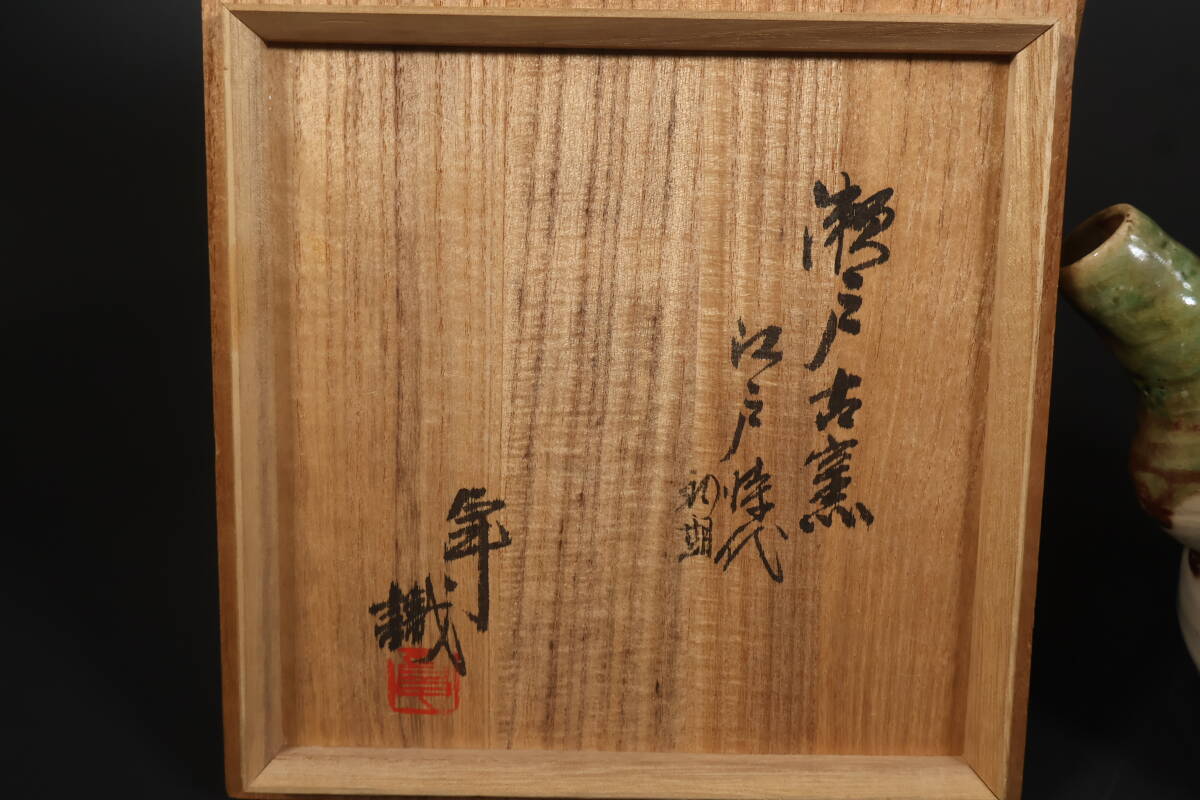 瀬戸古窯
江戸時代
初期
年識